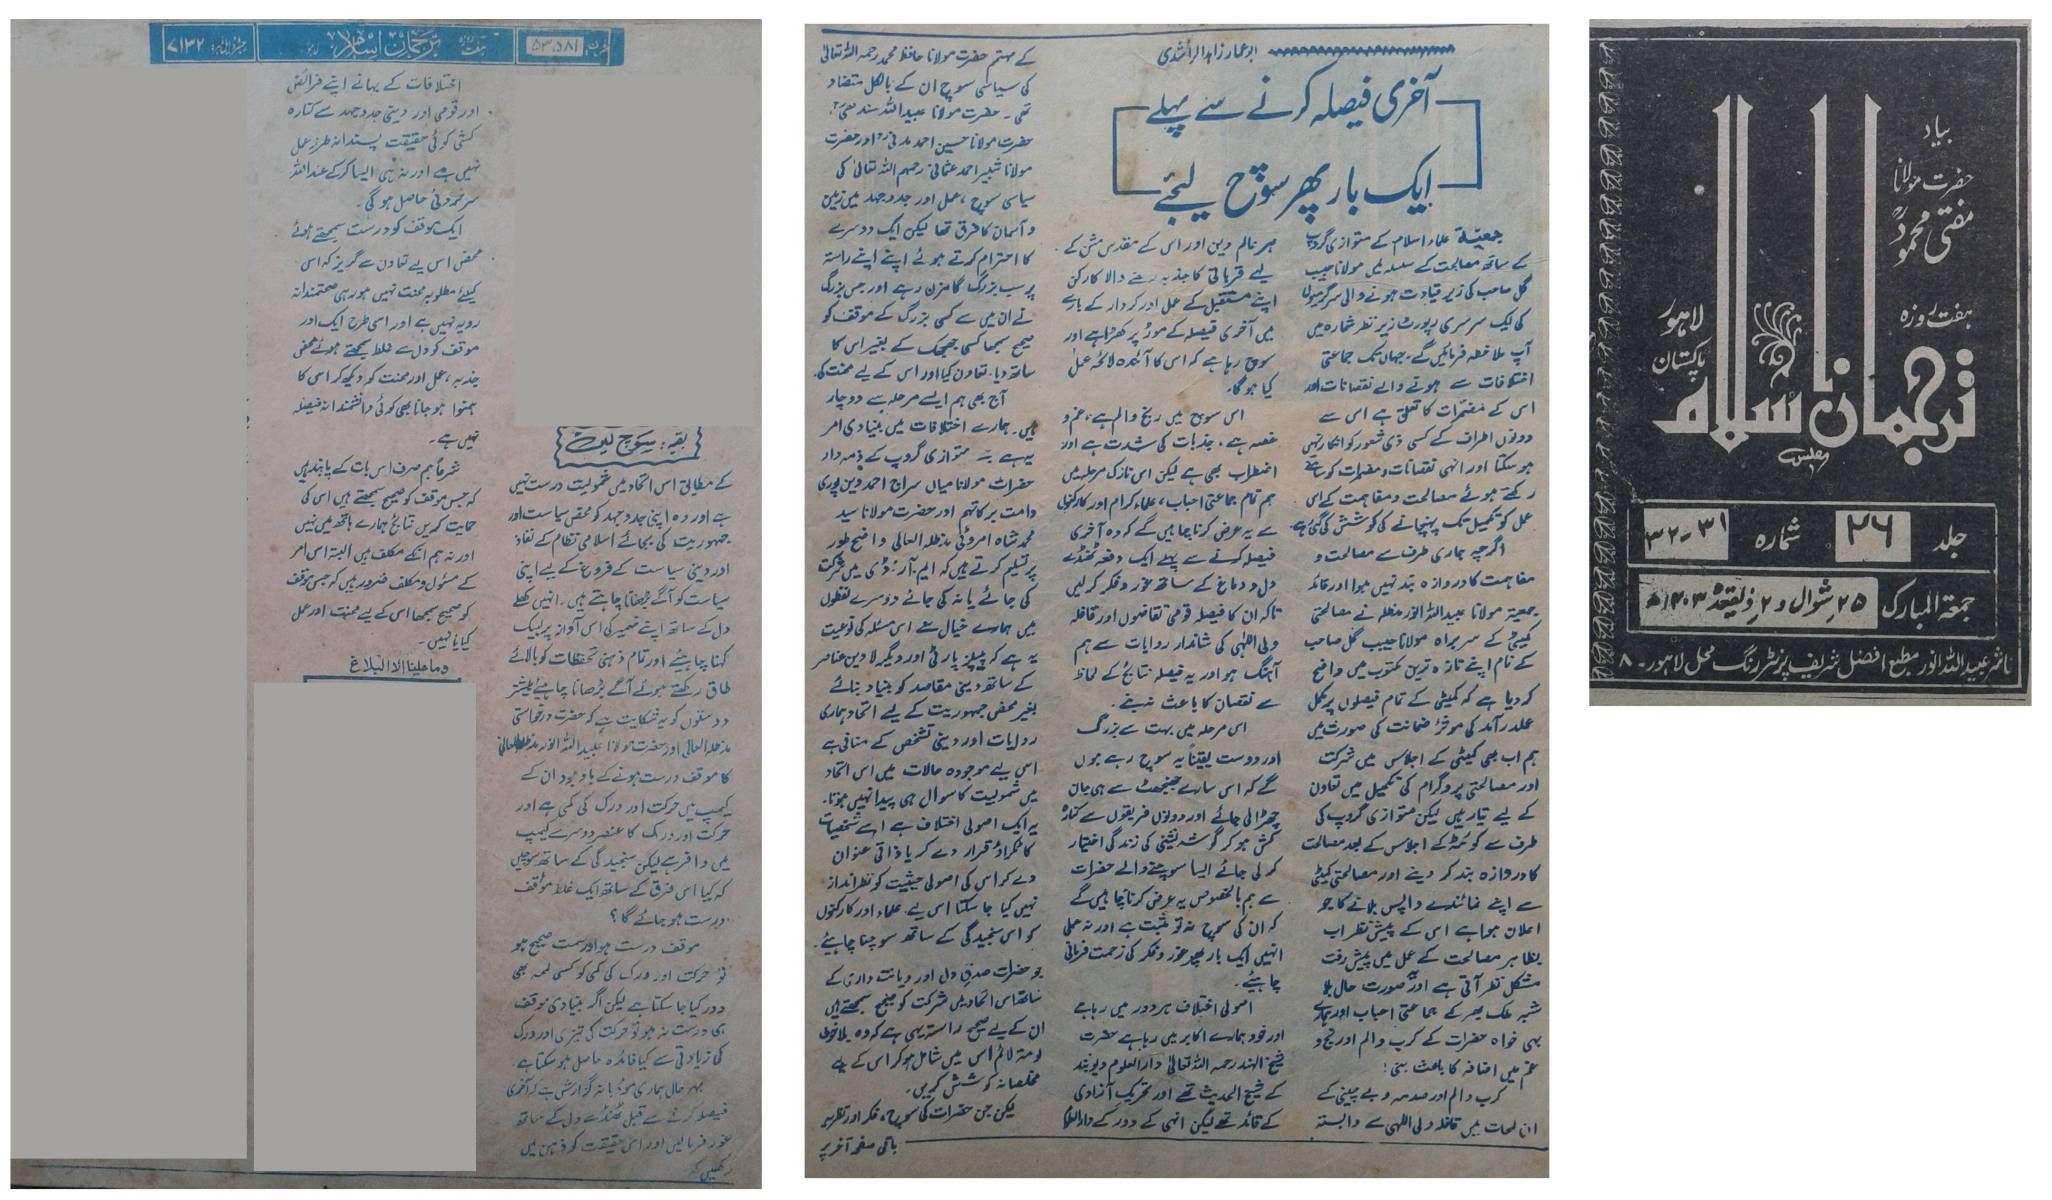 بیاد
حضرت مولانا
مفتی محمودؒ
ہفت روزہ
لاہور
پاکستان
ترجمان اسلام
جلد ۲۶ شمارہ ۳۱-۳۲
جمعۃ المبارک ۲۵ شوال و ۲ ذیقعدہ ۱۴۰۳ھ
ناشر عبیداللہ انور مطبع افضل شریف پرنٹرز رنگ محل لاہور۔ ۸
ابو عمار زاہد الراشدی
آخری فیصلہ کرنے سے پہلے
ایک بار پھر سوچ لیجئے
جمعیۃ علماء اسلام کے متوازی گروپ
کے ساتھ مصالحت کے سلسلہ میں مولانا حبیب
گل صاحب کی زیر قیادت ہونے والی سرگرمیوں
کی ایک سرسری رپورٹ زیر نظر شمارہ میں
آپ ملاحظہ فرمائیں گے۔ جہاں تک جماعتی
اختلافات سے ہونے والے نقصانات اور
اس کے مضمرات کا تعلق ہے اس سے
دونوں اطراف کے کسی ذی شعور کو انکار نہیں
ہو سکتا اور انہی نقصانات و مضمرات کو سامنے
رکھتے ہوئے مصالحت و مفاہمت کے اس
عمل کو تکمیل تک پہنچانے کی کوشش کی گئی ہے۔
اگرچہ ہماری طرف سے مصالحت و
مفاہمت کا دروازہ بند نہیں ہوا اور قائد
جمعیۃ مولانا عبیداللہ انور مدظلہ نے مصالحتی
کمیٹی کے سربراہ مولانا حبیب گل صاحب
کے نام اپنے تازہ ترین مکتوب میں واضح
کر دیا ہے کہ کمیٹی کے تمام فیصلوں پر مکمل
عملدرآمد کی موثر ضمانت کی صورت میں
ہم اب بھی کمیٹی کے اجلاس میں شرکت
اور مصالحتی پروگرام کی تکمیل میں تعاون
کے لیے تیار ہیں لیکن متوازی گروپ کی
طرف سے کوئٹہ کے اجلاس کے بعد مصالحت
کا دروازہ بند کر دینے اور مصالحتی کمیٹی
سے اپنے نمائندے واپس بلانے کا جو
اعلان ہوا ہے اس کے پیش نظر اب
بظاہر مصالحت کے عمل میں پیش رفت
مشکل نظر آتی ہے اور یہ صورت حال بلا
شبہ ملک بھر کے جماعتی احباب اور ہمارے
بہی خواہ حضرات کے کرب و الم اور رنج و
غم میں اضافہ کا باعث بنی!
کرب و الم اور صدمہ و بے چینی کے
ان لمحات میں قافلہ ولی اللہی سے وابستہ
ہر عالم دین اور اس کے مقدس مشن کے
لیے قربانی کا جذبہ رکھنے والا کارکن
اپنے مستقبل کے عمل اور کردار کے بارے
میں آخری فیصلہ کے موڑ پر کھڑا ہے اور
سوچ رہا ہے کہ اس کا آئندہ لائحہ عمل
کیا ہوگا۔
اس سوچ میں رنج و الم ہے، غم و
غصہ ہے، جذبات کی شدت ہے اور
اضطراب بھی ہے لیکن اس نازک مرحلہ میں
ہم تمام جماعتی احباب، علماء کرام اور کارکنوں
سے یہ عرض کرنا چاہیں گے کہ وہ آخری
فیصلہ کرنے سے پہلے ایک دفعہ ٹھنڈے
دل و دماغ کے ساتھ غور و فکر کر لیں
تاکہ ان کا فیصلہ قومی تقاضوں اور قافلہ
ولی اللہٰی کی شاندار روایات سے ہم
آہنگ ہو اور یہ فیصلہ نتائج کے لحاظ
سے نقصان کا باعث نہ بنے۔
اس مرحلہ میں بہت سے بزرگ
اور دوست یقیناً یہ سوچ رہے ہوں
گے کہ اس سارے جھنجھٹ سے ہی جان
چھڑا لی جائے اور دونوں فریقوں سے کنارہ
کش ہو کر گوشہ نشینی کی زندگی اختیار
کر لی جائے ایسا سوچنے والے حضرات
سے ہم بالخصوص یہ عرض کرنا چاہیں گے
کہ ان کی سوچ نہ تو مثبت ہے اور نہ عملی
انہیں ایک بار پھر غور و فکر کی زحمت فرمانی
چاہیئے۔
اصولی اختلاف ہر دور میں رہا ہے
اور خود ہمارے اکابر میں رہا ہے حضرت
شیخ الہند رحمہ اللہ تعالیٰ دارالعلوم دیوبند
کے شیخ الحدیث تھے اور تحریک آزادی
کے قائد تھے لیکن انہی کے دور کے دارالعلوم
کے مہتمم حضرت مولانا حافظ محمد رحمہ اللہ تعالیٰ
کی سیاسی سوچ ان کے بالکل متضاد
تھی۔ حضرت مولانا عبیداللہ سندھیؒ،
حضرت مولانا حسین احمد مدنیؒ اور حضرت
مولانا شبیر احمد عثمانی رحمہم اللہ تعالیٰ کی
سیاسی سوچ، عمل اور جدوجہد میں زمین
و آسمان کا فرق تھا لیکن ایک دوسرے
کا احترام کرتے ہوئے اپنے اپنے راستہ
پر سب بزرگ گامزن رہے اور جس بزرگ
نے ان میں سے کسی بزرگ کے موقف کو
صحیح سمجھا کسی جھجھک کے بغیر اس کا
ساتھ دیا، تعاون کیا اور اس کے لیے محنت کی۔
آج بھی ہم ایسے مرحلہ سے دوچار
ہیں۔ ہمارے اختلافات میں بنیادی امر
یہ ہے کہ متوازی گروپ کے ذمہ دار
حضرات مولانا میاں سراج احمد دین پوری
دامت برکاتہم اور حضرت مولانا سید
محمد شاہ امروٹی مدظلہ العالی واضح طور
پر تسلیم کرتے ہیں کہ ایم۔آر۔ڈی میں شرکت
کی جائے یا نہ کی جائے دوسرے لفظوں
میں ہمارے خیال سے اس مسئلہ کی نوعیت
یہ ہے کہ پیپلز پارٹی اور دیگر لادین عناصر
کے ساتھ دینی مقاصد کو بنیاد بنائے
بغیر محض جمہوریت کے لیے اتحاد ہماری
روایات اور دینی تشخص کے منافی ہے
اس لیے موجودہ حالات میں اس اتحاد
میں شمولیت کا سوال ہی پیدا نہیں ہوتا۔
یہ ایک اصولی اختلاف ہے اسے شخصیات
کا ٹکراؤ قرار دے کر یا ذاتی عنوان
دے کر اس کی اصولی حیثیت کو نظر انداز
نہیں کیا جا سکتا اس لیے علماء اور کارکنوں
کو اس سنجیدگی کے ساتھ سوچنا چاہیئے۔
جو حضرات صدق دل اور دیانت داری کے
ساتھ اس اتحاد میں شرکت کو صحیح سمجھتے ہیں
ان کے لیے صحیح راستہ یہی ہے کہ وہ بلا خوف
لومۃ لائم اس میں شامل ہو کر اس کے لیے
مخلصانہ کوشش کریں۔
لیکن جن حضرات کی سوچ، فکر اور نظریہ
باقی صفحہ آخر پر
ہفت روزہ ترجمان اسلام لاہور
۵۳۵۸۱
۷۱۳۲
بقیہ: سوچ لیں
کے مطابق اس اتحاد میں شمولیت درست نہیں
ہے اور وہ اپنی جدوجہد کو محض سیاست اور
جمہوریت کی بجائے اسلامی نظام کے نفاذ
اور دینی سیاست کے فروغ کے لیے اپنی
سیاست کو آگے بڑھانا چاہتے ہیں۔ انہیں کھلے
دل کے ساتھ اپنے ضمیر کی اس آواز پر لبیک
کہنا چاہیئے اور تمام ذہنی تحفظات کو بالائے
طاق رکھتے ہوئے آگے بڑھنا چاہیئے بیشتر
دوستوں کو یہ شکایت ہے کہ حضرت درخواستی
مدظلہ العالی اور حضرت مولانا عبیداللہ انور مدظلہ العالی
کا موقف درست ہونے کے باوجود ان کے
کیمپ میں حرکت اور ورک کی کمی ہے اور
حرکت اور ورک کا عنصر دوسرے کیمپ
میں وافر ہے لیکن سنجیدگی کے ساتھ سوچیں
کہ کیا اس فرق کے ساتھ ایک غلط مؤقف
درست ہو جائے گا؟
موقف درست ہو اور سمت صحیح ہو
تو حرکت اور ورک کی کمی کو کسی لمحہ بھی
دور کیا جا سکتا ہے لیکن اگر بنیادی موقف
ہی درست نہ ہو تو حرکت کی تیزی اور ورک
کی زیادتی سے کیا فائدہ حاصل ہو سکتا ہے
بہر حال ہماری مودبانہ گزارش ہے کہ آخری
فیصلہ کرنے سے قبل ٹھنڈے دل کے ساتھ
غور فرمالیں اور اس حقیقت کو ذہن میں
رکھیں کہ
اختلافات کے بہانے اپنے فرائض
اور قومی اور دینی جدوجہد سے کنارہ
کشی کوئی حقیقت پسندانہ طرز عمل
نہیں ہے اور نہ ہی ایسا کر کے عنداللہ
سرخروئی حاصل ہوگی۔
ایک موقف کو درست سمجھتے ہوئے
محض اس لیے تعاون سے گریز کہ اس
کیلئے مطلوبہ محنت نہیں ہو رہی صحتمندانہ
رویہ نہیں ہے اور اسی طرح ایک اور
موقف کو دل سے غلط سمجھتے ہوئے محض
جذبہ، عمل اور محنت کو دیکھ کر اس کا
ہمنوا ہو جانا بھی کوئی دانشمندانہ فیصلہ
نہیں ہے۔
شرعاً ہم صرف اس بات کے پابند ہیں
کہ جس موقف کو صحیح سمجھتے ہیں اس کی
حمایت کریں نتائج ہمارے ہاتھ میں نہیں
اور نہ ہم انکے مکلف ہیں البتہ اس امر
کے مسئول و مکلف ضرور ہیں کہ جس موقف
کو صحیح سمجھا اس کے لیے محنت اور عمل
کیا یا نہیں۔
وما علینا الا البلاغ